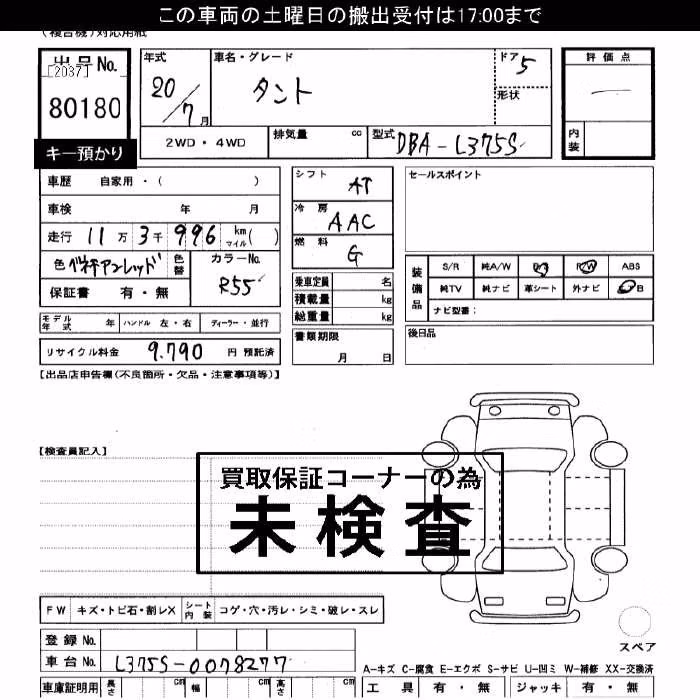 この車両の土曜日の搬出受付は17:00まで
(複合機)対応用紙
出品No. [2037] 80180
キー預かり
年式 20/7月
車名・グレード タント
ドア 5 形状
評価点 —
内装
2WD・4WD 排気量 cc 型式 DBA-L375S
車歴 自家用・( )
車検 年 月
走行 11万3千996 km マイル( )
色 ベネチアンレッド 色替 カラーNo. R55
保証書 有・無
シフト AT
冷房 AAC
燃料 G
乗車定員 名
積載量 kg
総重量 kg
セールスポイント
装備品 S/R 純A/W P/S P/W ABS
純TV 純ナビ 革シート 外ナビ B
ナビ型番:
モデル年式 年 ハンドル 左・右 ディーラー・並行
書類期限 月 日
後日品
リサイクル料金 9,790 円 預託済
【出品店申告欄(不良箇所・欠品・注意事項等)】
【検査員記入】
買取保証コーナーの為
未検査
FW キズ・トビ石・割レX シート内装 コゲ・穴・汚レ・シミ・破レ・スレ
スペア
登録No.
車台No. L375S-0078277
A-キズ C-腐食 E-エクボ S-サビ U-凹ミ W-補修 XX-交換済
車庫証明用 長さ cm 幅 cm 高さ cm
工具 有・無 ジャッキ 有・無